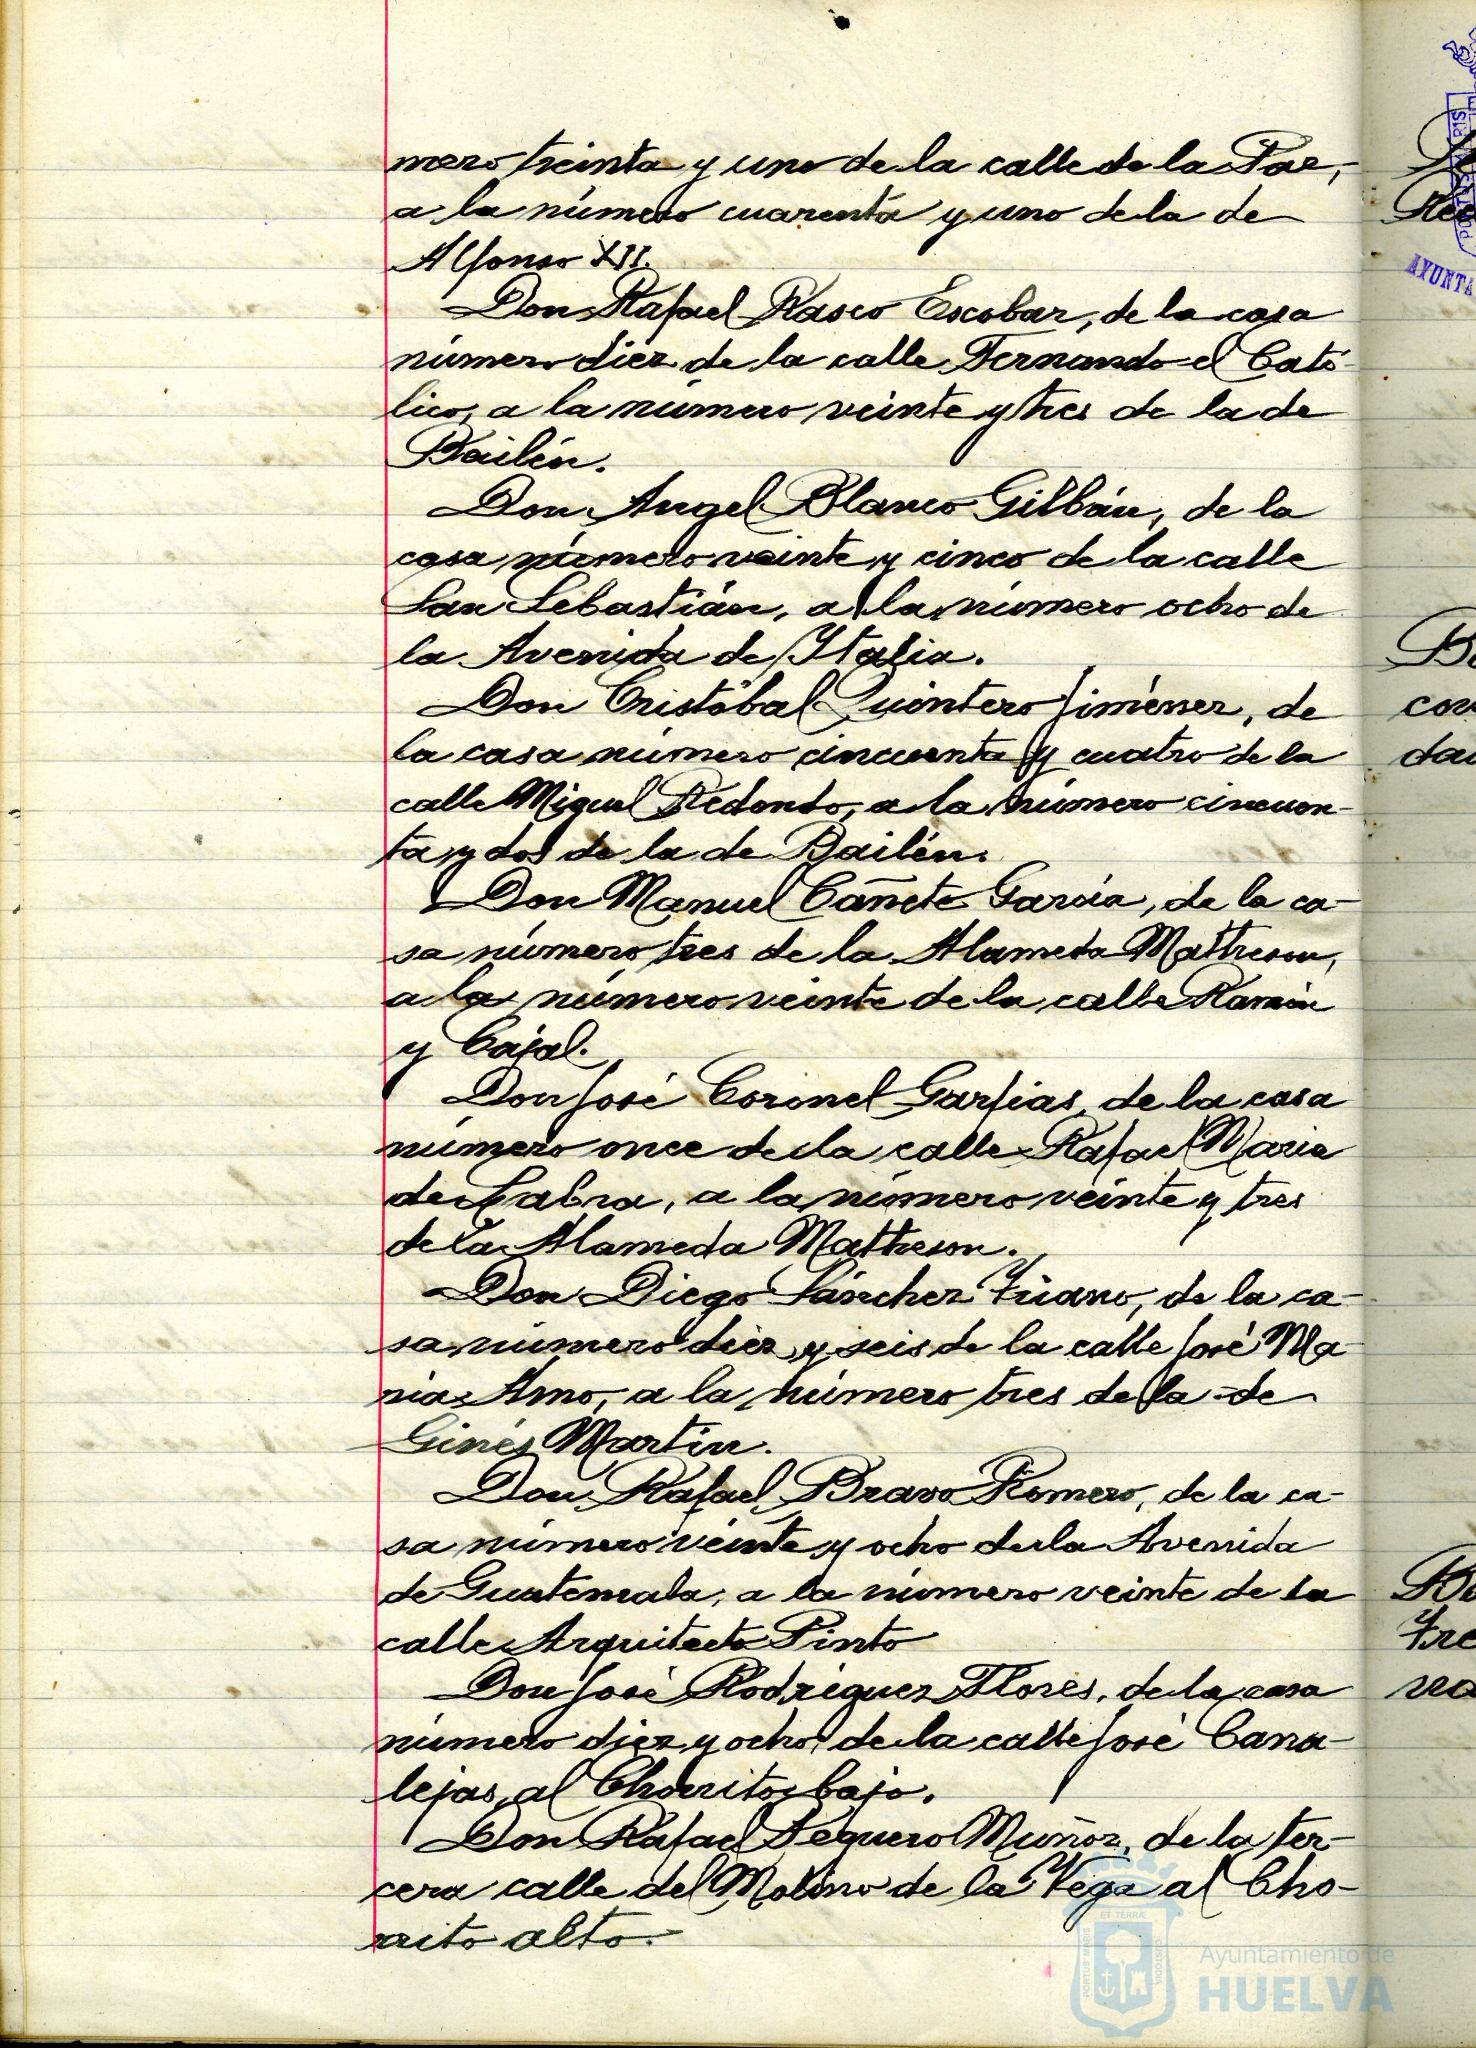 mero treinta y uno de la calle de la Paz,
a la número cuarenta y uno de la de
Alfonso XII.
Don Rafael Rasco Escobar, de la casa
número diez de la calle Fernando el Cató-
lico, a la número veinte y tres de la de
Bailén.
Don Angel Blanco Gilbán, de la
casa número veinte y cinco de la calle
San Sebastián, a la número ocho de
la Avenida de Italia.
Don Cristóbal Quintero Jiménez, de
la casa número cincuenta y cuatro de la
calle Miguel Redondo, a la número cincuen-
ta y dos de la de Bailén.
Don Manuel Cañete García, de la ca-
sa número tres de la Alameda Mattheson,
a la número veinte de la calle Ramón
y Cajal.
Don José Coronel Garfias, de la casa
número once de la calle Rafael María
de Labra, a la número veinte y tres
de la Alameda Mattheson.
Don Diego Sánchez, de la ca-
sa número diez y seis de la calle José Ma-
ría Amo, a la número tres de la de
Ginés Martín.
Don Rafael Bravo Romero, de la ca-
sa número veinte y ocho de la Avenida
de Guatemala, a la número veinte de la
calle Arquitecto Pinto
Don José Rodríguez Flores, de la casa
número diez y ocho de la calle José Cana-
lejas, al Chorrito bajo.
Don Rafael Pequero Muñoz, de la ter-
cera calle del Molino de la Vega al Cho-
rrito alto.
Ayuntamiento de
HUELVA
AYUNTA